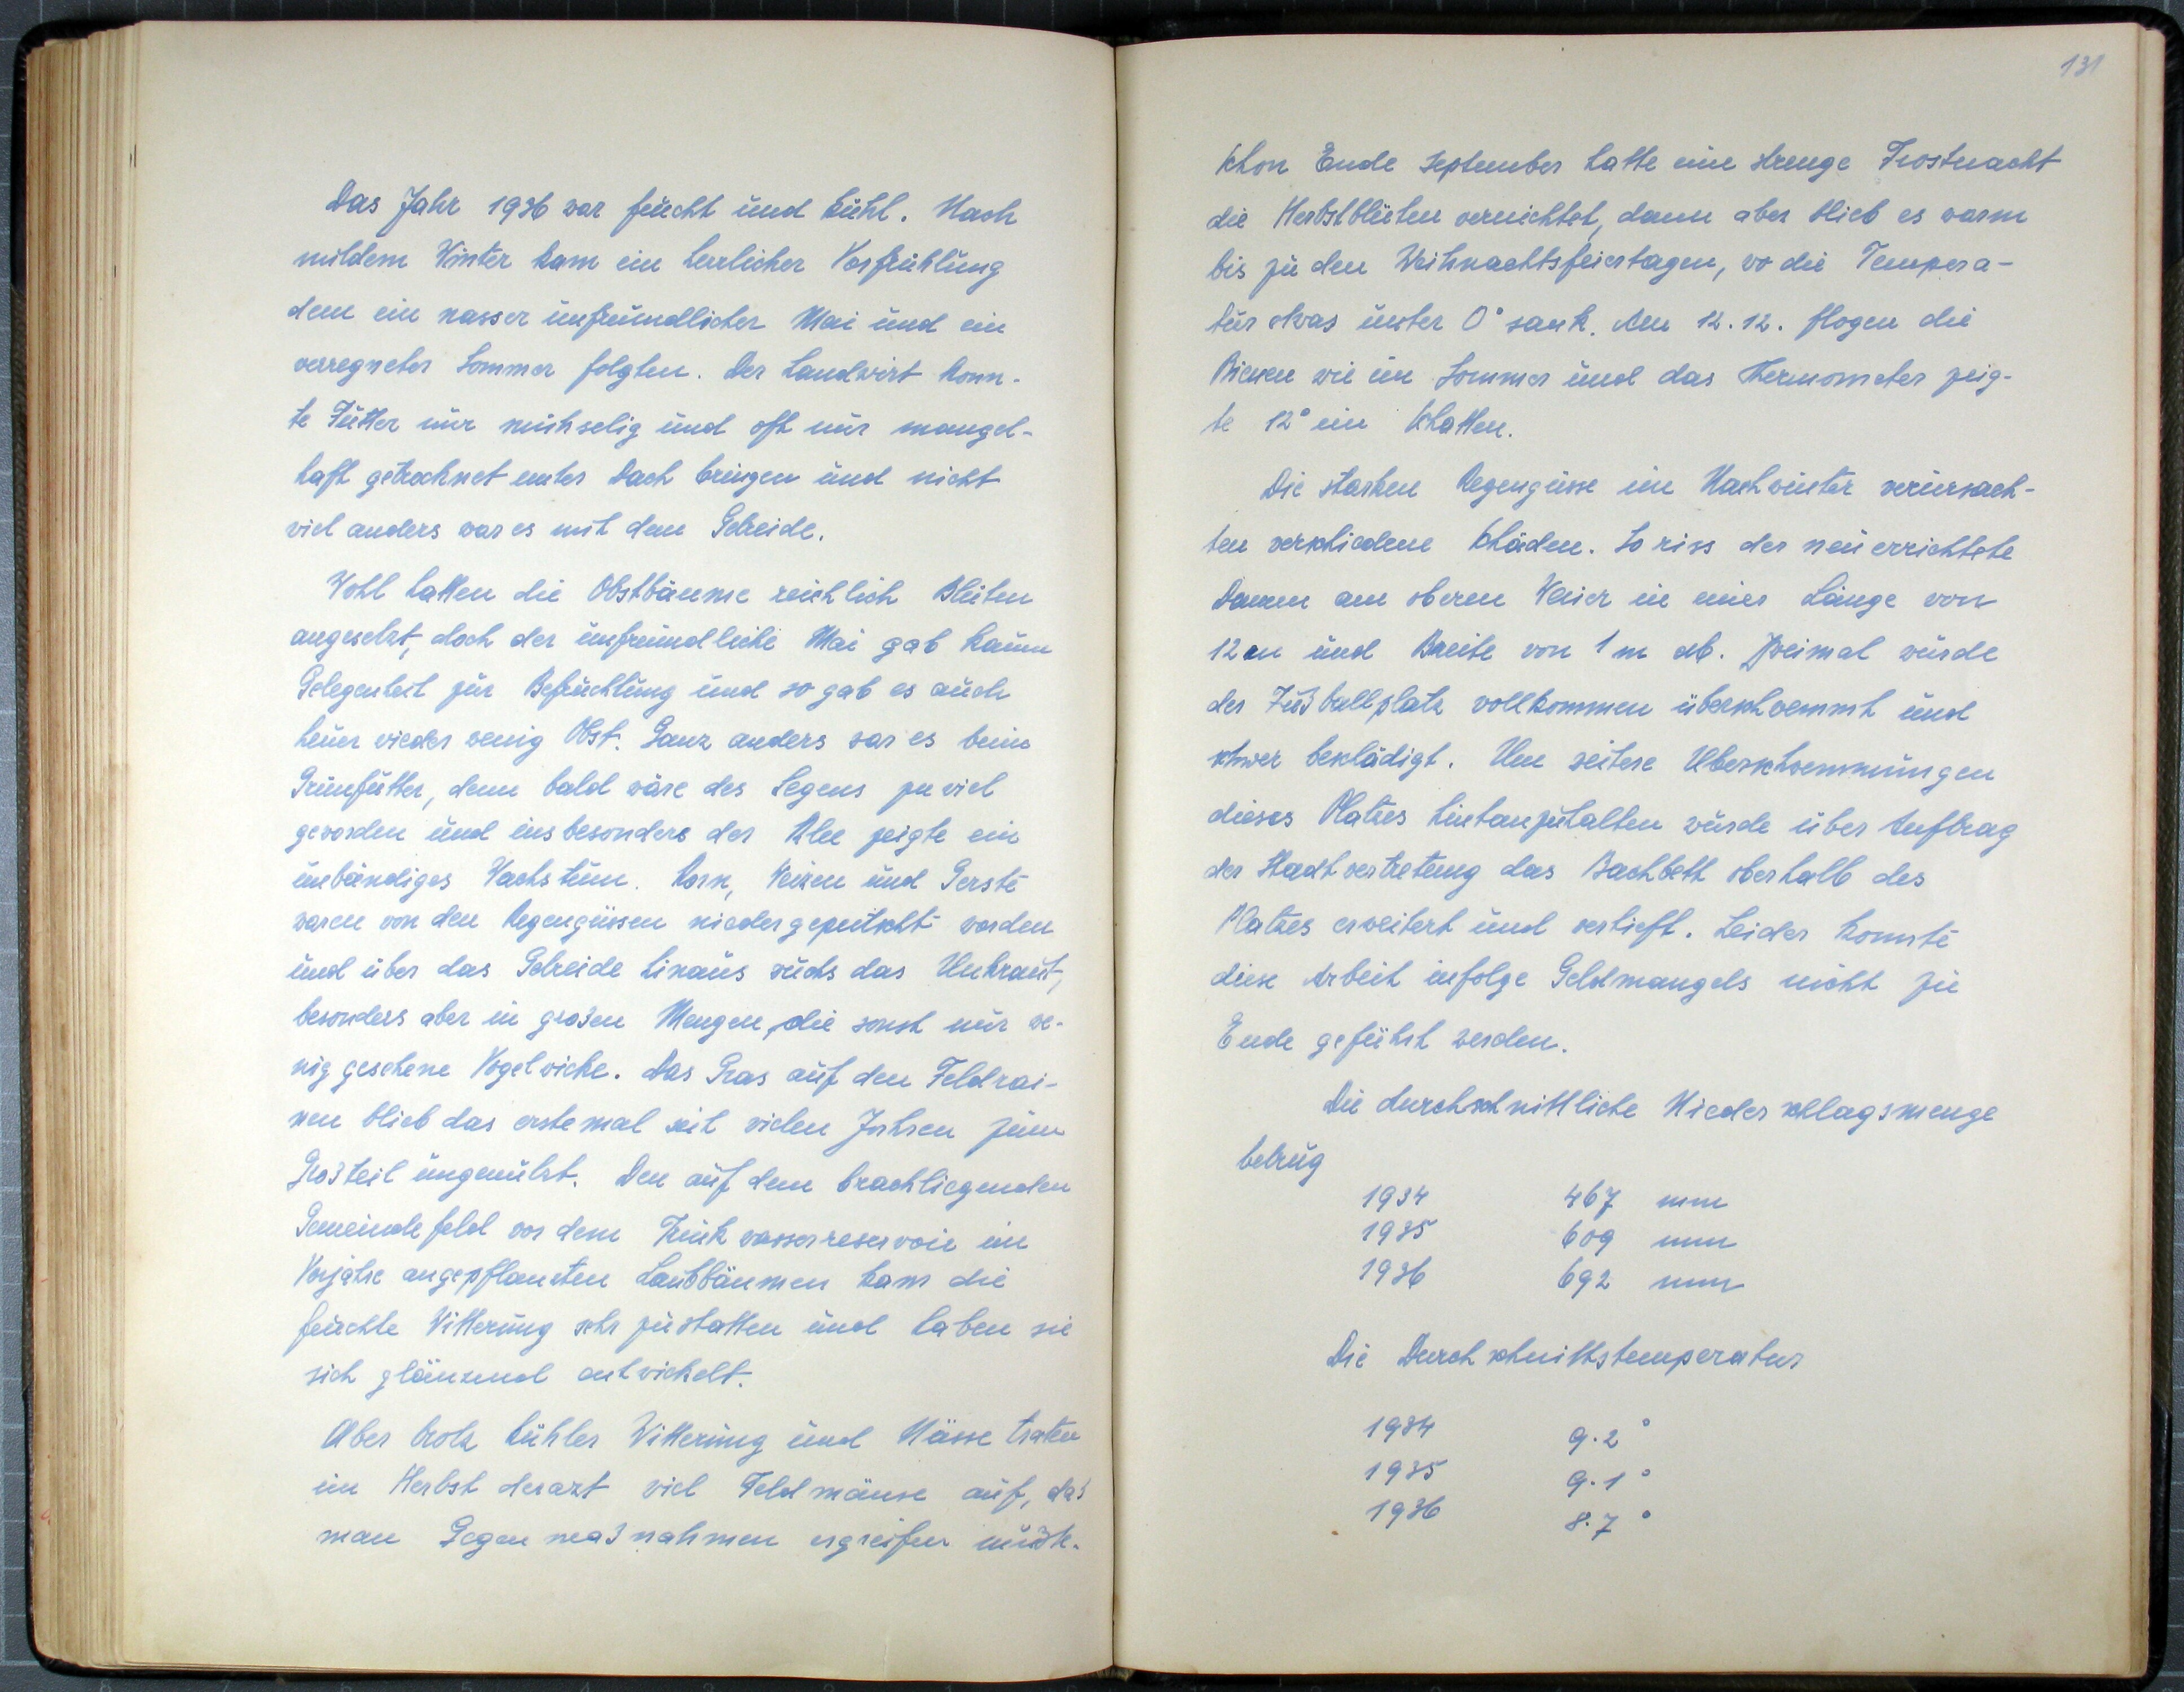 Das Jahr 1936 war feucht und kühl. Nach
mildem Winter kam ein herrlicher Vorfrühlung
dem ein nasser unfreundlicher Mai und ein
verregneter Sommer folgten. Der Landwirt konn-
te Futter nur mühselig und oft nur mangel-
haft getrocknet unter Dach bringen und nicht
viel anders war es mit dem Getreide.
Wohl hatten die Obstbäume reichlich Blüten
angesetzt, doch der unfreundliche Mai gab kaum
Gelegenheit zur Befruchtung und so gab es auch
heuer wieder wenig Obst. Ganz anders war es beim
Grünfutter, denn bald wäre des Segens zu viel
geworden und insbesondere der Klee zeigte ein
unbändiges Wachstum. Korn, Weizen und Gerste
waren von den Regengüssen niedergepeitscht worden
und über das Getreide hinaus wuchs das Unkraut,
besonders aber in großen Mengen, die sonst nur we-
nig gesehene Vogelwicke. Das Gras auf den Feldrai-
nen blieb das erste mal seit vielen Jahren zum
Großteil ungenützt. Den auf dem brachliegenden
Gemeindefeld vor dem Trinkwasserreservoir im
Vorjahre angepflanzten Laubbäumen kam die
feuchte Witterung sehr zustatten und haben sie
sich glänzend entwickelt.
Aber trotz kühler Witterung und Nässe traten
im Herbst derart viel Feldmäuse auf, daß
man Gegenmaßnahmen ergreifen mußte.
131
Schon Ende September hatte eine strenge Frostnacht
die Herbstblüten vernichtet, dann aber blieb es warm
bis zu den Weihnachtsfeiertagen, wo die Tempera-
tur etwas unter 0° sank. Am 12.12. flogen die
Bienen wie im Sommer und das Thermometer zeig-
te 12° im Schatten.
Die starken Regengüsse im Nachwinter verursach-
ten verschiedene Schäden. So riss der neuerrichtete
Damm am oberen Weier in einer Länge von
12 m und Breite von 1 m ab. Zweimal wurde
der Fußballplatz vollkommen überschwemmt und
schwer beschädigt. Um weitere Überschwemmungen
dieses Platzes hintanzuhalten wurde über Auftrag
der Stadtvertretung das Bachbett oberhalb des
Platzes erweitert und vertieft. Leider konnte
diese Arbeit infolge Geldmangels nicht zu
Ende geführt werden.
Die durchschnittliche Niederschlagsmenge
betrug
1934 467 mm
1935 609 mm
1936 692 mm
Die Durchschnittstemperatur
1934 9.2°
1935 9.1°
1936 8.7°